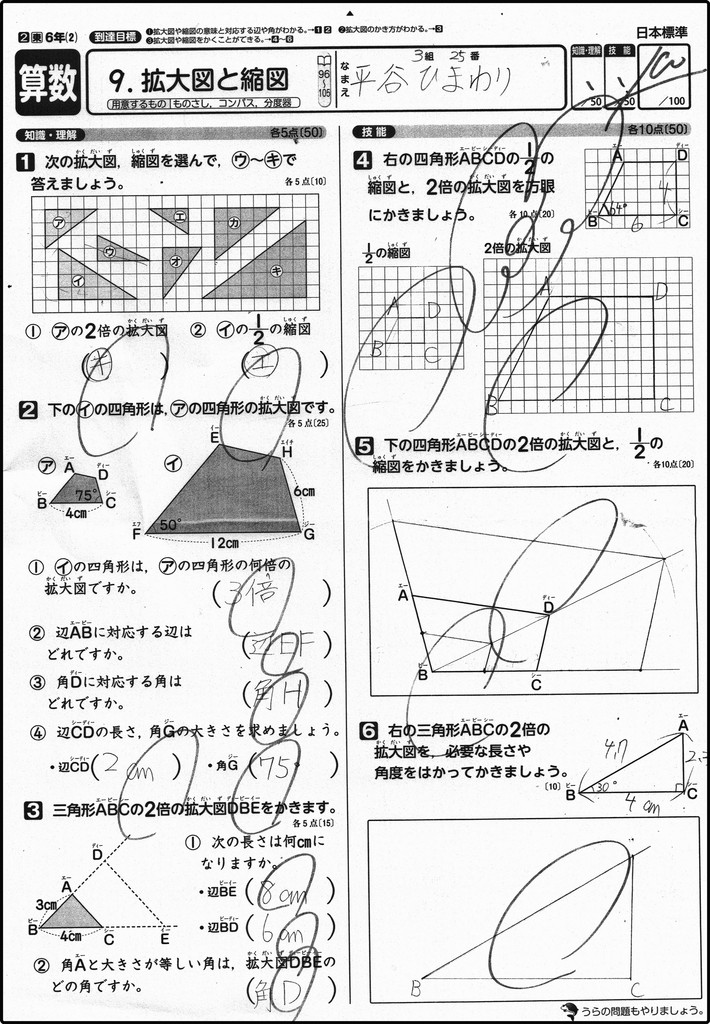 2 東 6年(2) 到達目標 ❶拡大図や縮図の意味と対応する辺や角がわかる。→1 2 ❷拡大図のかき方がわかる。→3
❸拡大図や縮図をかくことができる。→4~6
日本標準
算数
9. 拡大図と縮図
用意するもの ものさし, コンパス, 分度器
96~105
なまえ
3組 25番
平谷 ひまわり
知識・理解 /50
技能 /50
100 /100
知識・理解 各5点〔50〕
1 次の拡大図, 縮図を選んで, ㋒~㋖で
答えましょう。 各5点〔10〕
㋐ ㋓ ㋕
㋒ ㋔ ㋖
㋑
① ㋐の2倍の拡大図 ② ㋑の1/2の縮図
(㋖) (㋓)
2 下の㋑の四角形は, ㋐の四角形の拡大図です。
各5点〔25〕
㋐ A D 75° B C 4cm
㋑ E H 6cm 50° F G 12cm
① ㋑の四角形は, ㋐の四角形の何倍の
拡大図ですか。 (3倍)
② 辺ABに対応する辺は
どれですか。 (辺EF)
③ 角Dに対応する角は
どれですか。 (角H)
④ 辺CDの長さ, 角Gの大きさを求めましょう。
・辺CD(2cm) ・角G(75°)
3 三角形ABCの2倍の拡大図DBEをかきます。
各5点〔15〕
D A 3cm B 4cm C E
① 次の長さは何cmに
なりますか。
・辺BE (8cm)
・辺BD (6cm)
② 角Aと大きさが等しい角は, 拡大図DBEの
どの角ですか。 (角D)
技能 各10点〔50〕
4 右の四角形ABCDの1/2の
縮図と, 2倍の拡大図を方眼
にかきましょう。 各10点〔20〕
A D 4 64° B 6 C
1/2の縮図 2倍の拡大図
A D B C
A D B C
5 下の四角形ABCDの2倍の拡大図と, 1/2の
縮図をかきましょう。 各10点〔20〕
A D B C
6 右の三角形ABCの2倍の
拡大図を, 必要な長さや
角度をはかってかきましょう。
〔10〕
A 4,7 30° B 4cm C
B C
うらの問題もやりましょう。